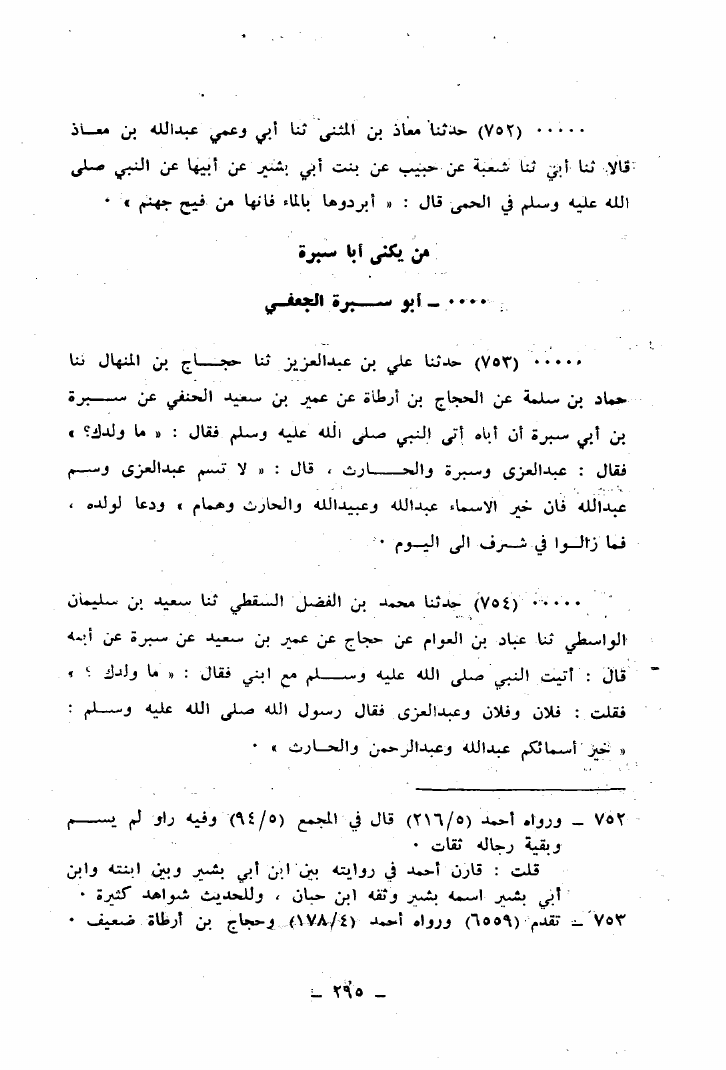 ٠٠٠٠٠ (٧٥٢) حدثنا معاذ بن المثنى ثنا أبي وعمي عبدالله بن معــاذ
قالا ثنا أبي ثنا شعبة عن حبيب عن بنت أبي بشير عن أبيها عن النبي صلى
الله عليه وسلم في الحمى قال : « أبردوها بالماء فانها من فيح جهنم » ٠
من يكنى أبا سبرة
٠٠٠٠ ـ أبو ســـبرة الجعفــي
٠٠٠٠٠ (٧٥٣) حدثنا علي بن عبدالعزيز ثنا حجـــاج بن المنهال ثنا
حماد بن سلمة عن الحجاج بن أرطاة عن عمير بن سعيد الحنفي عن ســـبرة
بن أبي سبرة أن أباه أتى النبي صلى الله عليه وسلم فقال : « ما ولدك؟ »
فقال : عبدالعزى وسبرة والحـــارث ، قال : « لا تسم عبدالعزى وســم
عبدالله فان خير الاسماء عبدالله وعبيدالله والحارث وهمام » ودعا لولده ،
فما زالــوا في شــرف الى اليــوم ٠
٠٠٠٠٠ (٧٥٤) حدثنا محمد بن الفضل السقطي ثنا سعيد بن سليمان
الواسطي ثنا عباد بن العوام عن حجاج عن عمير بن سعيد عن سبرة عن أبيه
قال : أتيت النبي صلى الله عليه وســـلم مع ابني فقال : « ما ولدك ؟ »
فقلت : فلان وفلان وعبدالعزى فقال رسول الله صلى الله عليه وســلم :
« خير أسمائكم عبدالله وعبدالرحمن والحــارث » ٠
٧٥٢ ـ ورواه أحمد (٢١٦/٥) قال في المجمع (٩٤/٥) وفيه راو لم يســـم
وبقية رجاله ثقات ٠
قلت : قارن أحمد في روايته بين ابن أبي بشير وبين ابنته وابن
أبي بشير اسمه بشير وثقه ابن حبان ، وللحديث شواهد كثيرة ٠
٧٥٣ ـ تقدم (٦٥٥٩) ورواه أحمد (١٧٨/٤) وحجاج بن أرطاة ضعيف ٠
ـ ٢٩٥ ـ